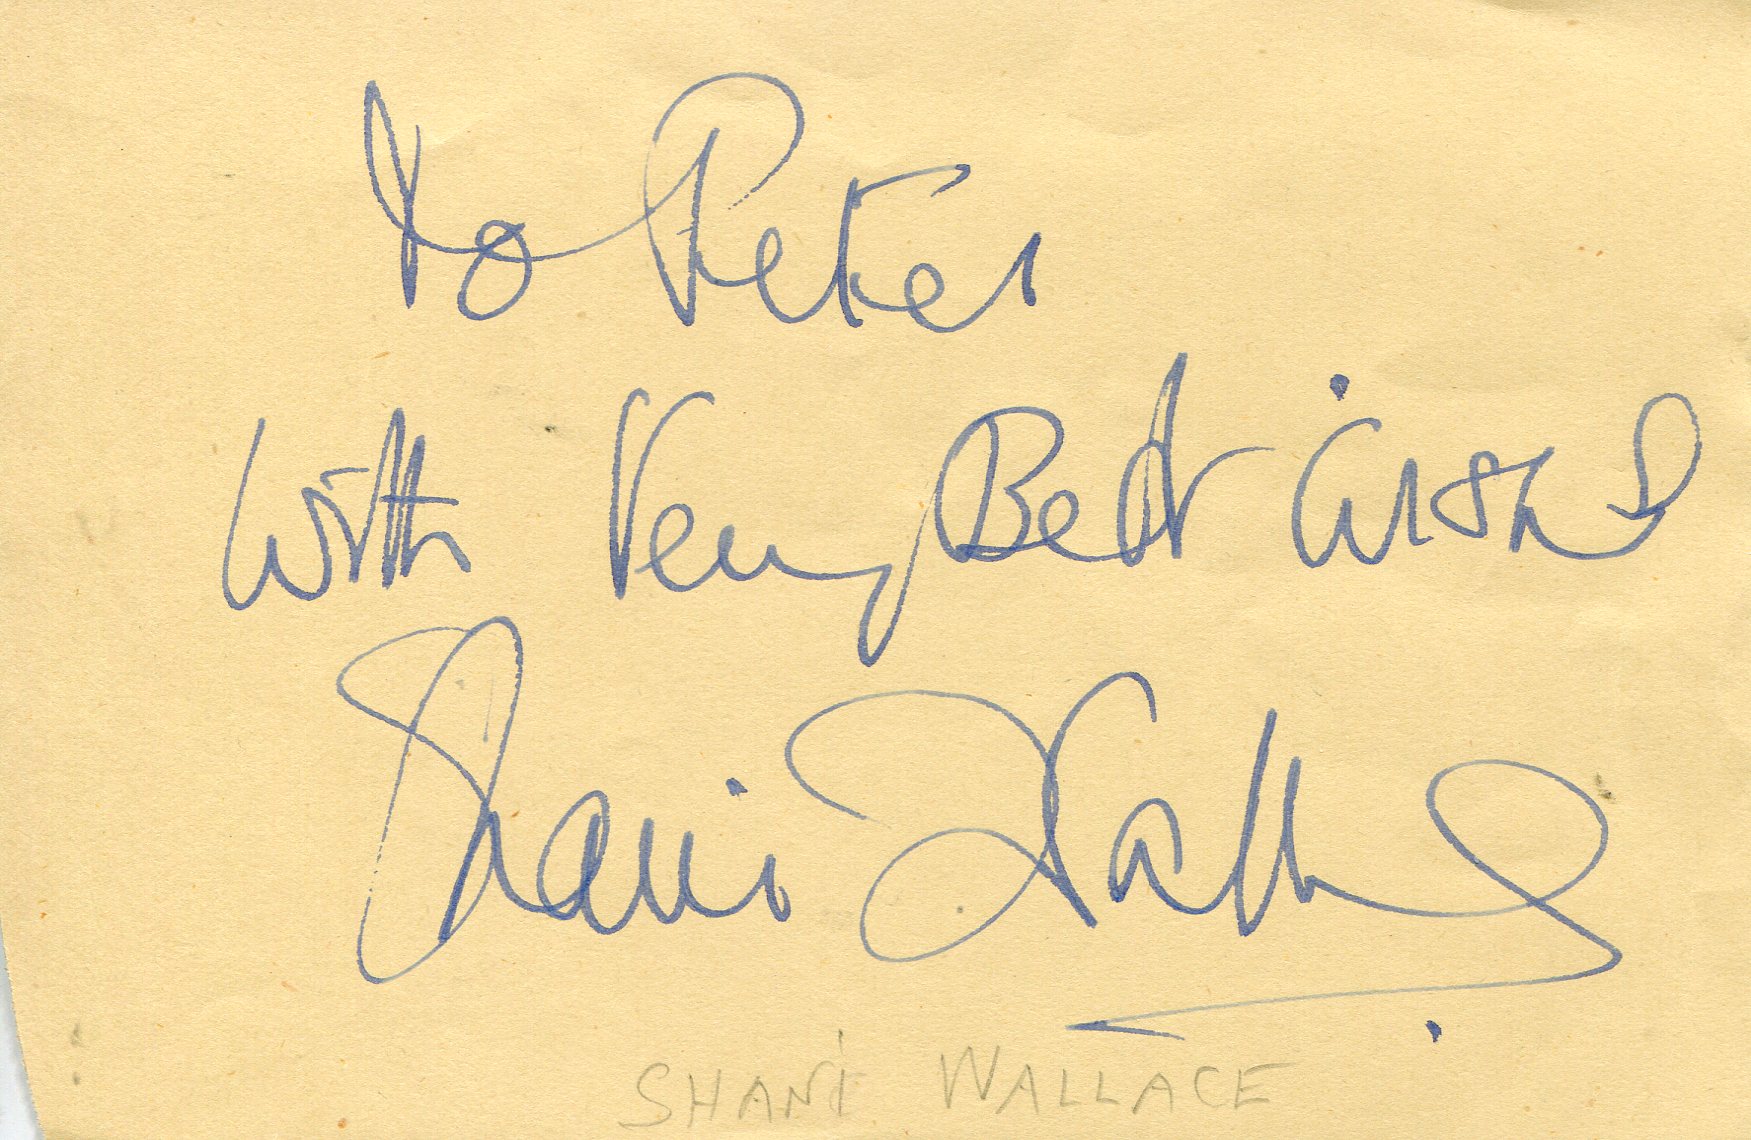 To Peter
With Very Best Wishes
Shani Wallis
SHANI WALLACE